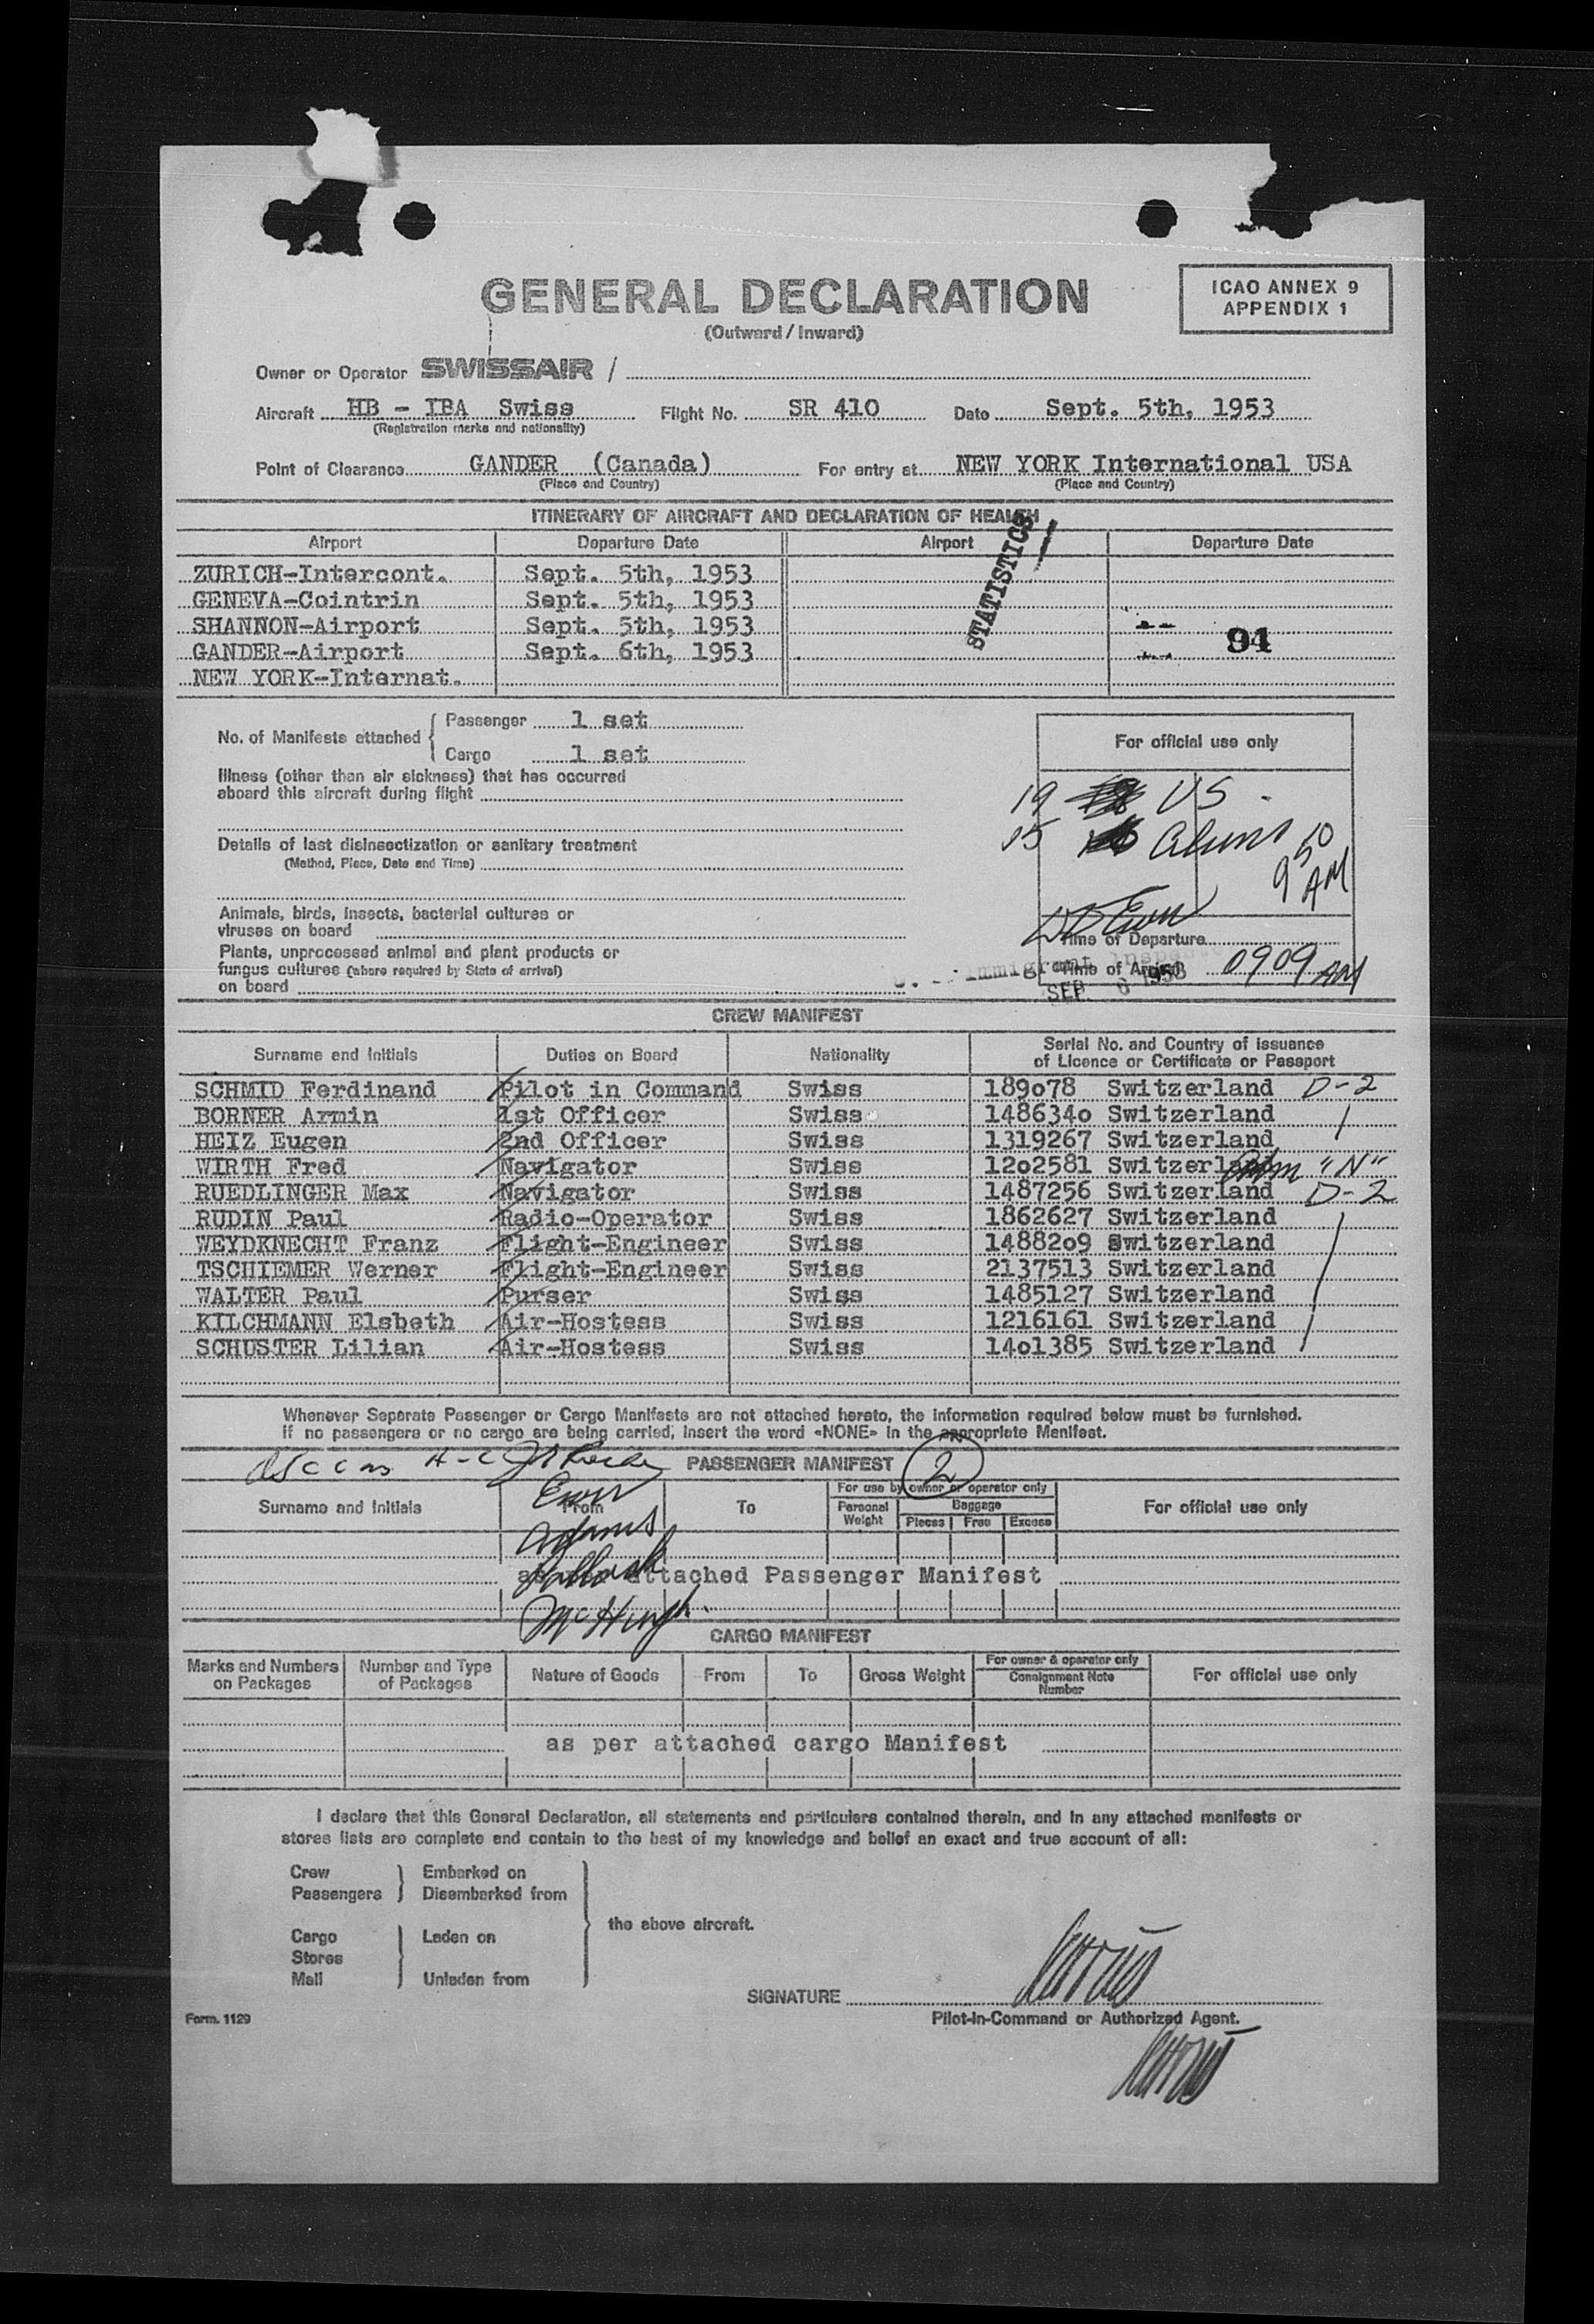 GENERAL DECLARATION
(Outward / Inward)
ICAO ANNEX 9
APPENDIX 1
Owner or Operator SWISSAIR /
Aircraft HB - IBA Swiss Flight No. SR 410 Date Sept. 5th, 1953
(Registration marks and nationality)
Point of Clearance GANDER (Canada) For entry at NEW YORK International USA
(Place and Country) (Place and Country)
ITINERARY OF AIRCRAFT AND DECLARATION OF HEALTH
Airport Departure Date Airport Departure Date
STATISTICS
ZURICH-Intercont. Sept. 5th, 1953
GENEVA-Cointrin Sept. 5th, 1953
SHANNON-Airport Sept. 5th, 1953
94
GANDER-Airport Sept. 6th, 1953
NEW YORK-Internat.
No. of Manifests attached
Passenger 1 set
Cargo 1 set
For official use only
Illness (other than air sickness) that has occurred
aboard this aircraft during flight
19 US
Details of last disinsectization or sanitary treatment
(Method, Place, Date and Time)
Aliens
950 AM
Animals, birds, insects, bacterial cultures or
viruses on board
Time of Departure
Plants, unprocessed animal and plant products or
fungus cultures (where required by State of arrival)
on board
Immigrant
Time of Arrival 0909 AM
SEP 6 1953
CREW MANIFEST
Surname and Initials Duties on Board Nationality Serial No. and Country of Issuance
of Licence or Certificate or Passport
SCHMID Ferdinand Pilot in Command Swiss 189o78 Switzerland D-2
BORNER Armin 1st Officer Swiss 148634o Switzerland
HEIZ Eugen 2nd Officer Swiss 1319267 Switzerland
WIRTH Fred Navigator Swiss 12o2581 Switzerland "N"
RUEDLINGER Max Navigator Swiss 1487256 Switzerland D-2
RUDIN Paul Radio-Operator Swiss 1862627 Switzerland
WEYDKNECHT Franz Flight-Engineer Swiss 14882o9 Switzerland
TSCHIEMER Werner Flight-Engineer Swiss 2137513 Switzerland
WALTER Paul Purser Swiss 1485127 Switzerland
KILCHMANN Elsbeth Air-Hostess Swiss 1216161 Switzerland
SCHUSTER Lilian Air-Hostess Swiss 14o1385 Switzerland
Whenever Separate Passenger or Cargo Manifests are not attached hereto, the information required below must be furnished.
If no passengers or no cargo are being carried, insert the word «NONE» in the appropriate Manifest.
PASSENGER MANIFEST 2
Surname and Initials From To For use by owner or operator only For official use only
Personal Weight Baggage
Pieces Free Excess
Adams
as per attached Passenger Manifest
McHugh
CARGO MANIFEST
Marks and Numbers on Packages Number and Type of Packages Nature of Goods From To Gross Weight For owner & operator only
Consignment Note Number For official use only
as per attached cargo Manifest
I declare that this General Declaration, all statements and particulars contained therein, and in any attached manifests or
stores lists are complete and contain to the best of my knowledge and belief an exact and true account of all:
Crew Embarked on
Passengers Disembarked from
the above aircraft.
Cargo Laden on
Stores
Mail Unladen from
SIGNATURE
Form. 1129
Pilot-in-Command or Authorized Agent.